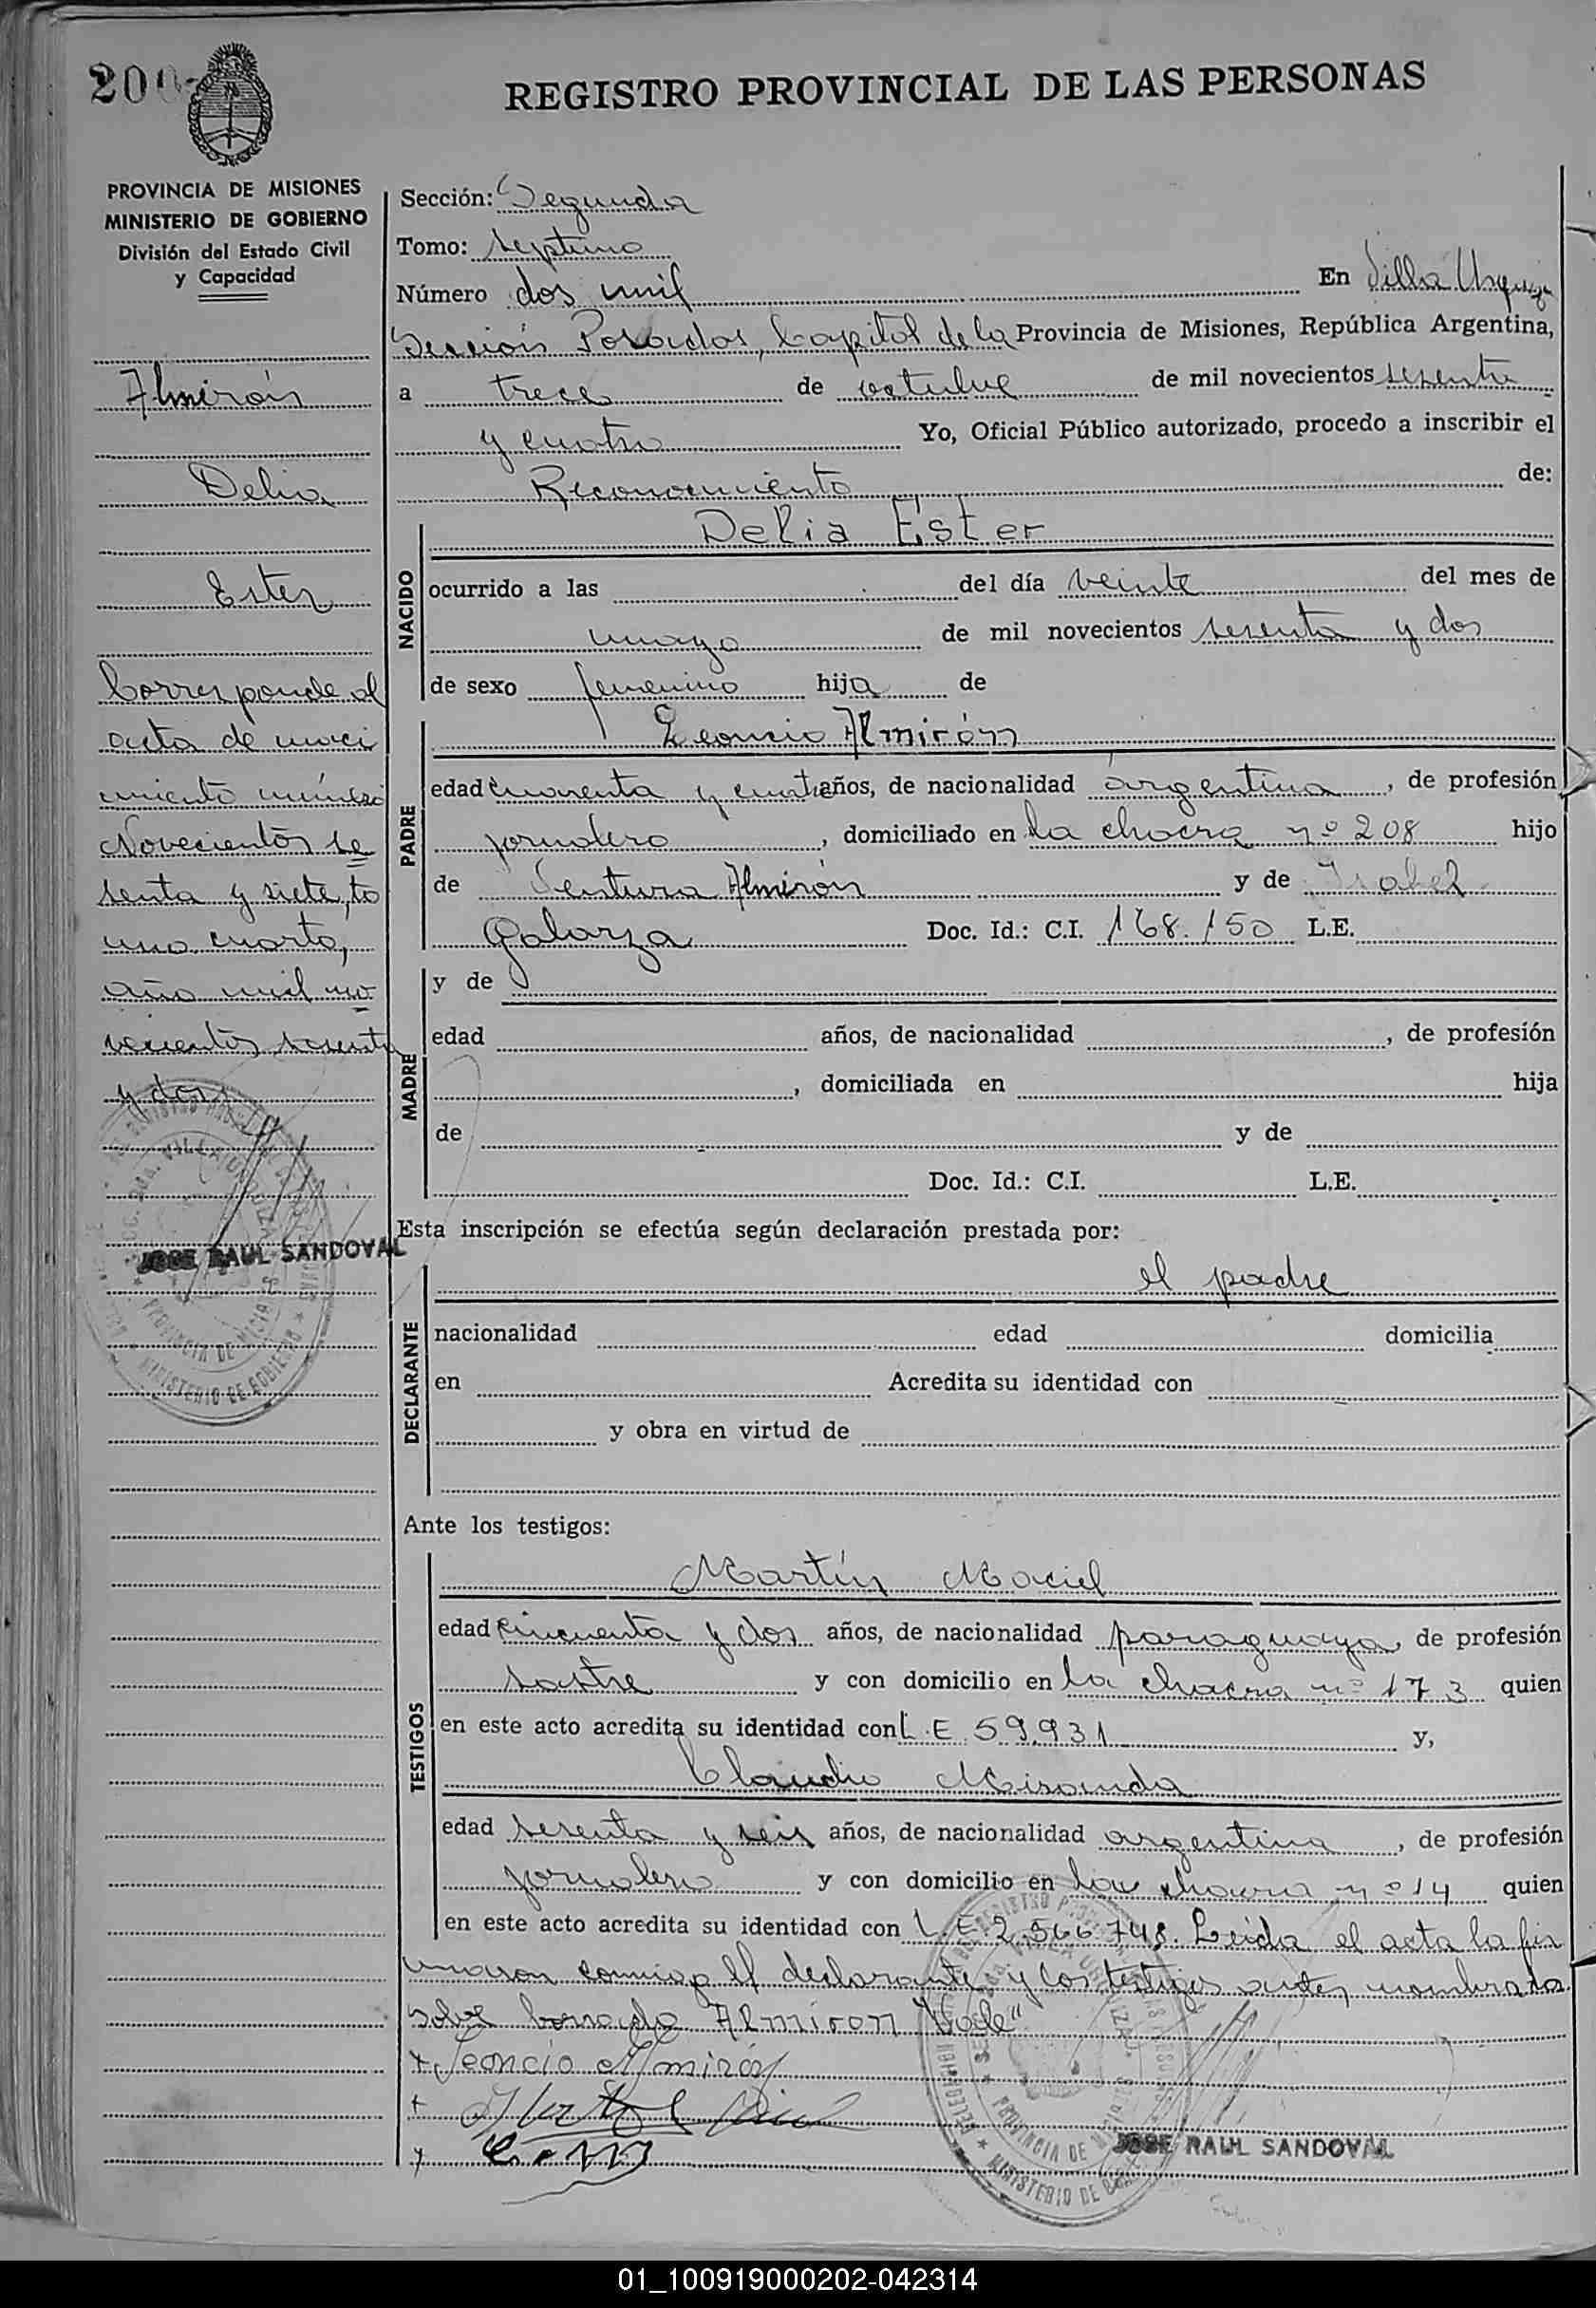 200
REGISTRO PROVINCIAL DE LAS PERSONAS
PROVINCIA DE MISIONES
MINISTERIO DE GOBIERNO
División del Estado Civil
y Capacidad
Almirón
Delia
Ester
Corresponde al
acta de naci
miento número
Novecientos se
senta y siete, to
mo cuarto,
año mil no
vecientos sesenta
y dos
JOSE RAUL SANDOVAL
Sección: Segunda
Tomo: septimo
Número dos mil En Villa Urquiza
Sección Posadas, Capital de la Provincia de Misiones, República Argentina,
a trece de octubre de mil novecientos sesenta
y cuatro Yo, Oficial Público autorizado, procedo a inscribir el
Reconocimiento de:
NACIDO
Delia Ester
ocurrido a las del día veinte del mes de
mayo de mil novecientos sesenta y dos
de sexo femenino hija de
PADRE
Leoncio Almirón
edad cuarenta y cuatro años, de nacionalidad argentina, de profesión
jornalero, domiciliado en la chacra nº 208 hijo
de Ventura Almirón y de Isabel
Galarza Doc. Id.: C.I. 168.150 L.E.
MADRE
y de
edad años, de nacionalidad , de profesión
, domiciliada en hija
de y de
Doc. Id.: C.I. L.E.
Esta inscripción se efectúa según declaración prestada por:
DECLARANTE
el padre
nacionalidad edad domicilia
en Acredita su identidad con
y obra en virtud de
Ante los testigos:
TESTIGOS
Martín Maciel
edad cincuenta y dos años, de nacionalidad paraguaya, de profesión
sastre y con domicilio en la chacra nº 173 quien
en este acto acredita su identidad con L.E 59.931 y,
Claudio Miranda
edad sesenta y seis años, de nacionalidad argentina, de profesión
jornalero y con domicilio en la chacra nº 14 quien
en este acto acredita su identidad con L.E 2.566.748. Leida el acta la fir
maron conmigo el declarante y los testigos antes nombrados
sobre borrado Almiron "Vale"
+ Leoncio Almirón
+
+
JOSE RAUL SANDOVAL
PROVINCIA DE
MINISTERIO DE GOBIERNO
01_100919000202-042314